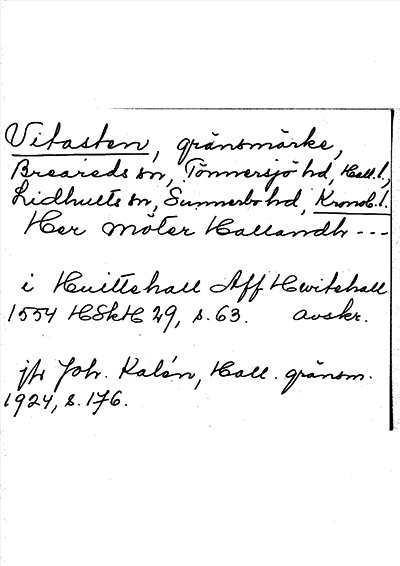 Vitasten, gränsmärke,
Breareds sn, Tönnersjö hd, Hall.l.,
Lidhults sn, Sunnerbo hd, Kronob.l.
Her möter Hallandh ---
i Huittehall Aff Hwitehall
1554 HSkH 29, s. 63. avskr.
jfr Joh. Kalén, Hall. gränsm.
1924, s. 176.